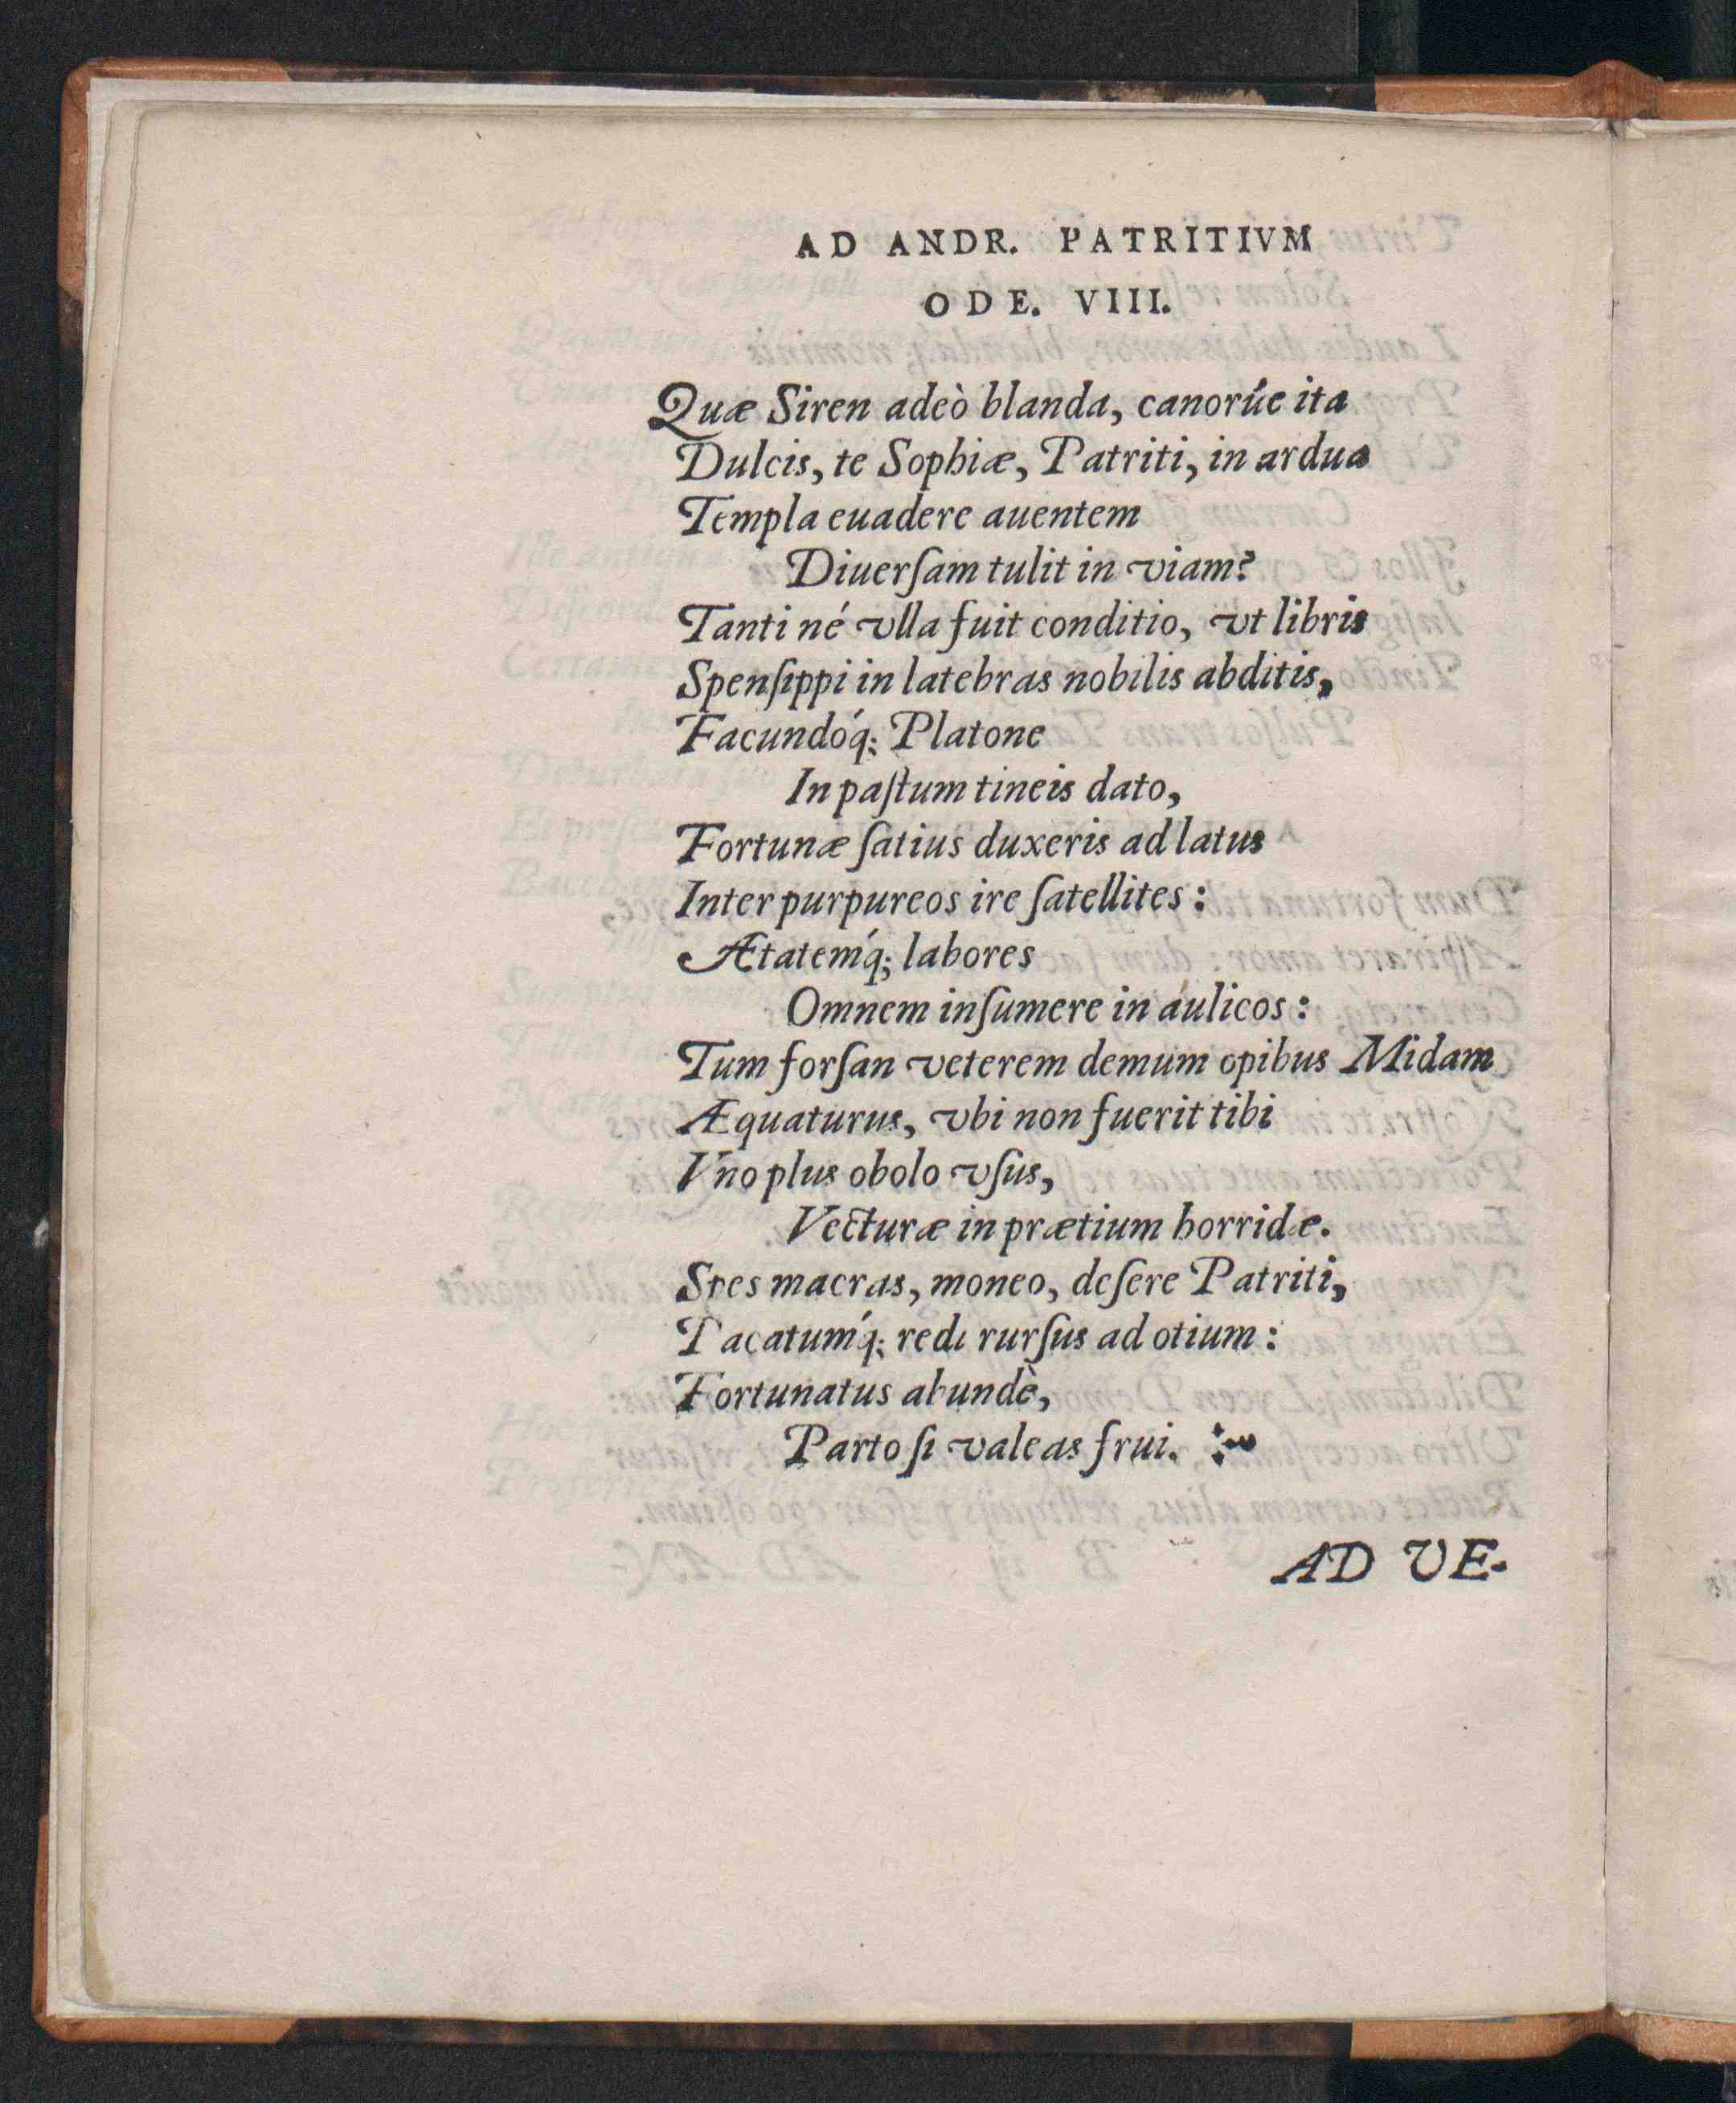 AD ANDR. PATRITIVM
ODE. VIII.
Quæ Siren adeò blanda, canorúe ita
Dulcis, te Sophiæ, Patriti, in ardua
Templa euadere auentem
Diuerſam tulit in viam?
Tanti né vlla fuit conditio, vt libris
Spenſippi in latebras nobilis abditis,
Facundóq́; Platone
In paſtum tineis dato,
Fortunæ ſatius duxeris ad latus
Inter purpureos ire ſatellites:
Ætatemq́; labores
Omnem inſumere in aulicos:
Tum forſan veterem demum opibus Midam
Æquaturus, vbi non fuerit tibi
Vno plus obolo vſus,
Vecturæ in prætium horridæ.
Spes macras, moneo, deſere Patriti,
Pacatumq́; redi rurſus ad otium:
Fortunatus abundè,
Parto ſi valeas frui.
AD VE-